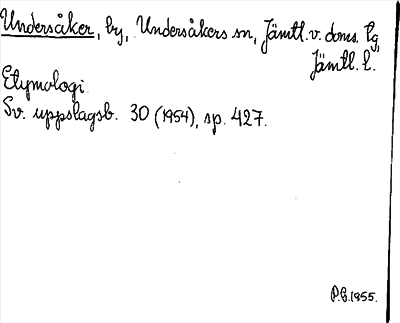 Undersåker, by, Undersåkers sn, Jämtl. v. doms. lg,
Jämtl. l.
Etymologi.
Sv. uppslagsb. 30 (1954), sp. 427.
P.G. 1955.